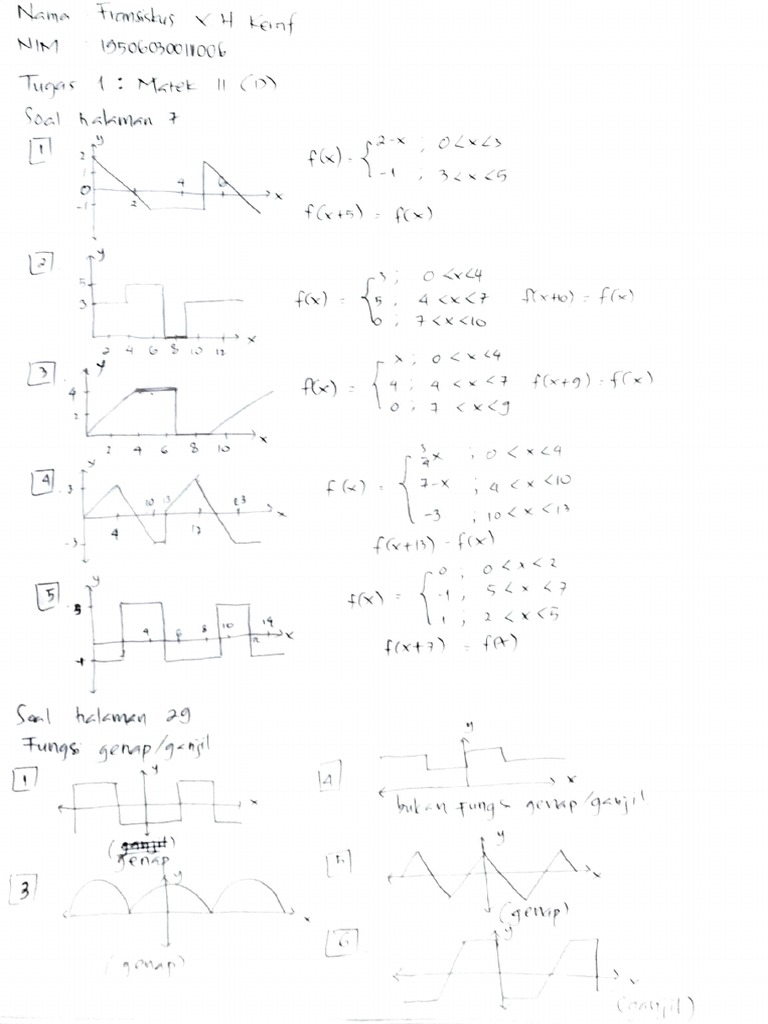 Nama Firmsiskus X H Kerinf
NIM : 195060300111006
Tugas 1 : Matek II (D)
Soal halaman 7
1
y
2
1
0
-1
2
4
6
x
f(x) = { 2-x ; 0<x<3
-1 ; 3<x<5
f(x+5) = f(x)
2
y
5
3
2 4 6 8 10 12
x
f(x) = { 3 ; 0<x<4
5 ; 4<x<7
0 ; 7<x<10
f(x+10) = f(x)
3
y
4
2
2 4 6 8 10
x
f(x) = { x ; 0<x<4
4 ; 4<x<7
0 ; 7<x<9
f(x+9) = f(x)
4
x
3
-3
4
10
13
17
23
x
f(x) = { 3/4 x ; 0<x<4
7-x ; 4<x<10
-3 ; 10<x<13
f(x+13) = f(x)
5
y
4 6 8 10 14
x
f(x) = { 0 ; 0<x<2
-1 ; 5<x<7
1 ; 2<x<5
f(x+7) = f(x)
Soal halaman 29
Fungsi genap/ganjil
1
y
x
(ganjil)
genap
4
y
x
bukan fungsi genap/ganjil
3
y
x
(genap)
5
y
x
(genap)
6
y
x
(ganjil)